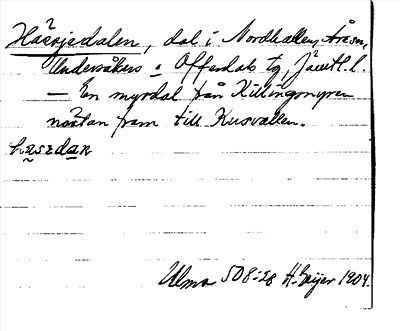 Hässjedalen, dal i Nordhallen, Åre sn,
Undersåkers o Offerdals tg, Jämtl. l.
— En myrdal från Killingmyren
nästan fram till Husvallen.
hasedaɴ
Ulma 508:28 H. Geijer 1904.